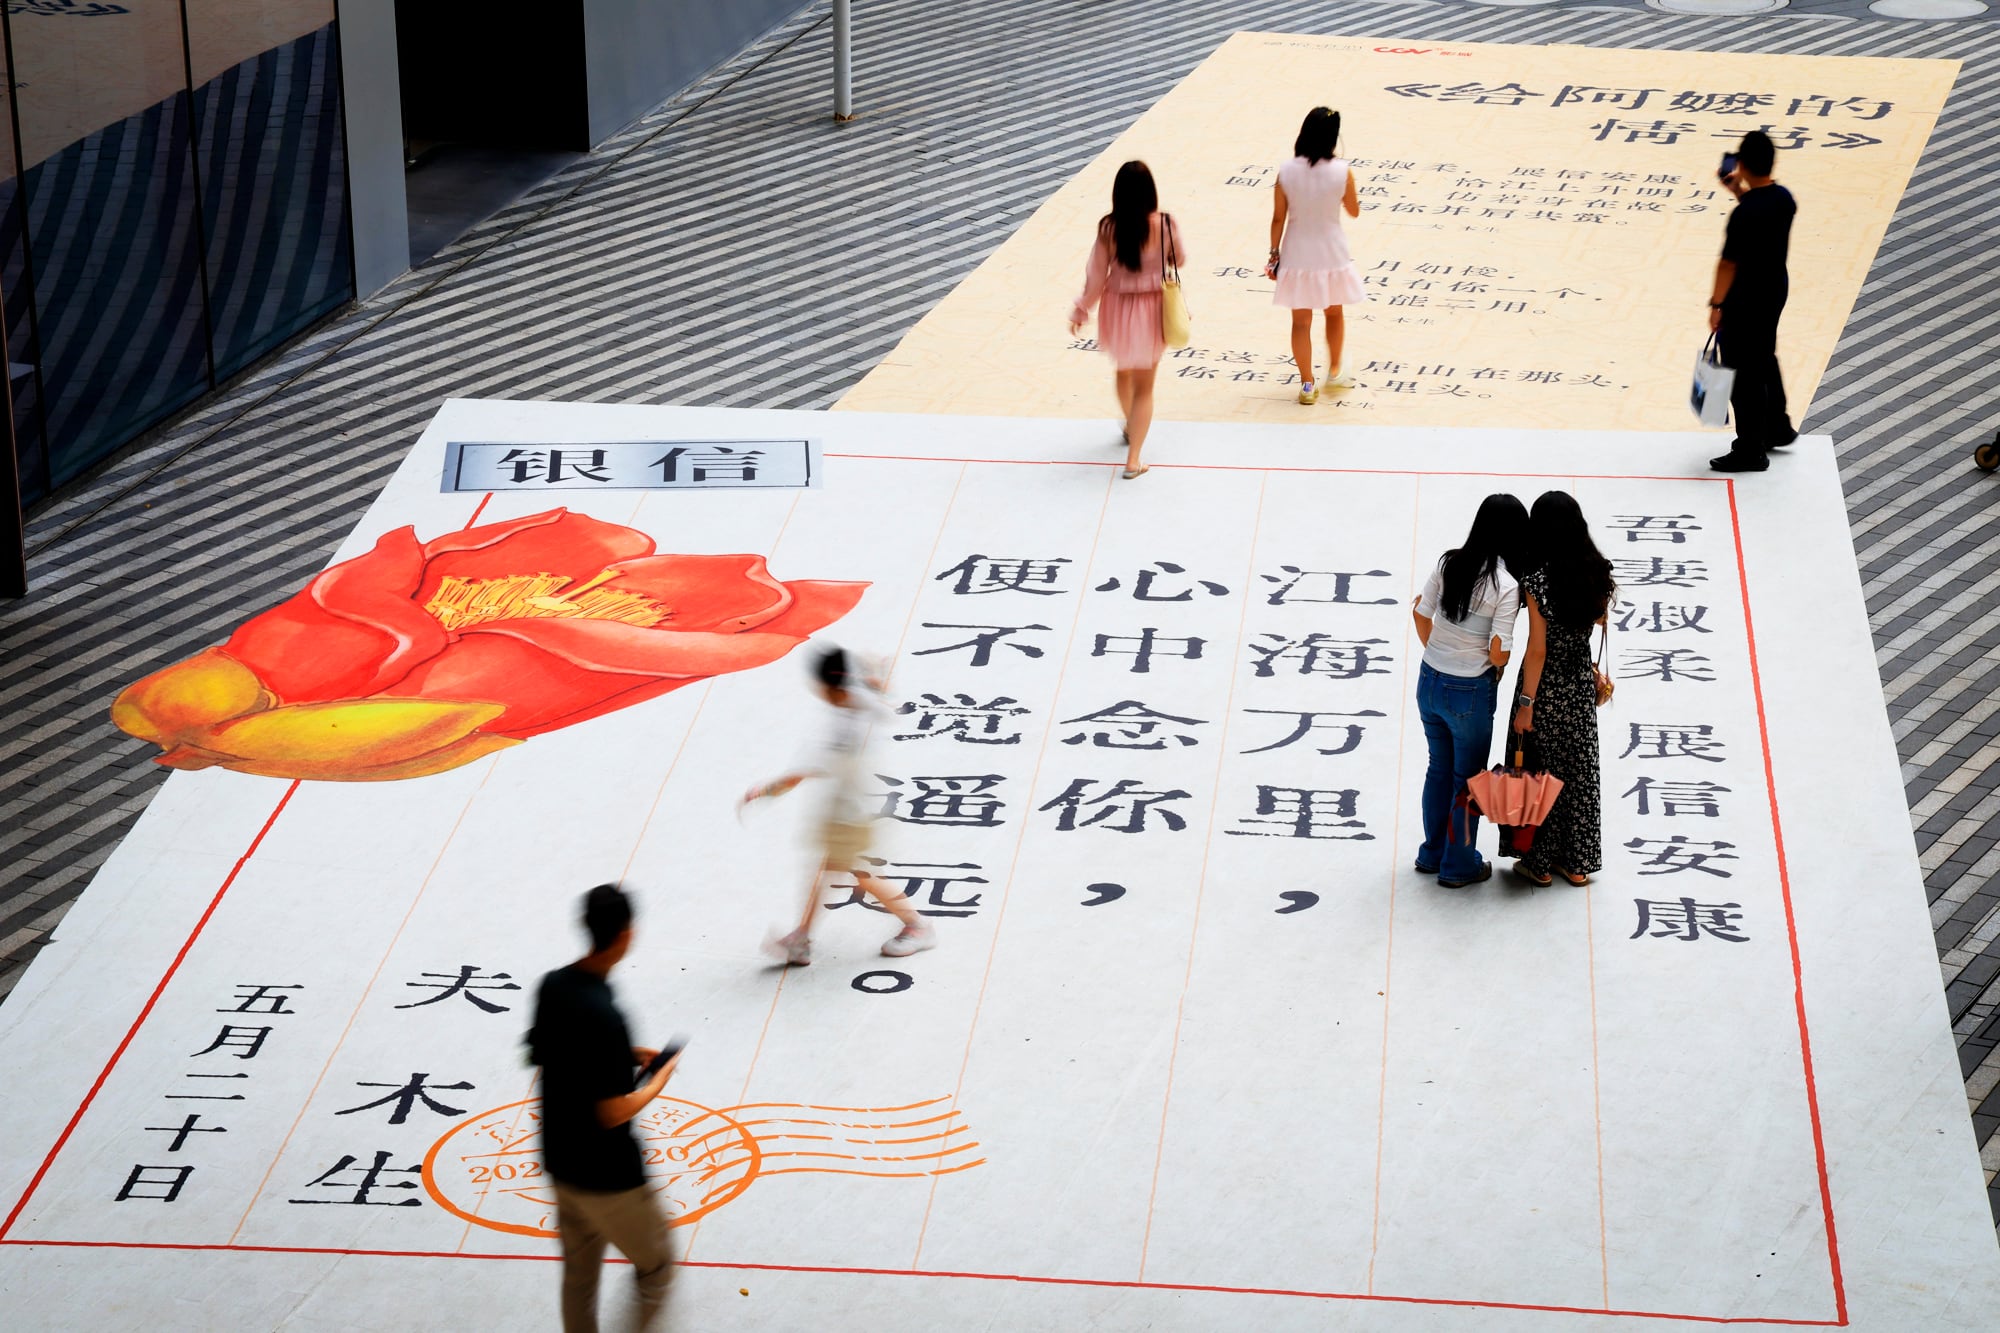 CGV影城
《给阿嬷的
情书》
妻淑柔，展信安康，
夜，恰江上升明月，
坠，仿若身在故乡，
与你并肩共赏。
月如梭，
只有你一个，
不能二用。
在这头，唐山在那头，
你在我心里头。
银信
吾妻淑柔 展信安康
江海万里，
心中念你，
便不觉遥远。
夫 木生
五月二十日